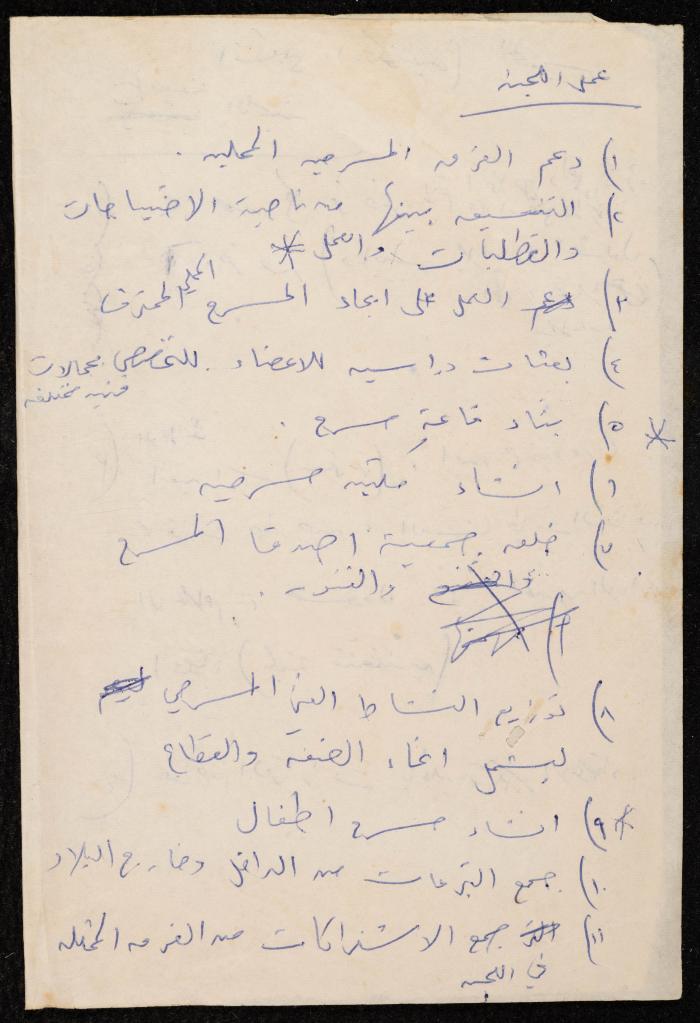 عمل اللجنه
١) دعم الفرق المسرحيه المحليه .
٢) التنسيق بينها من ناحية الاحتياجات
والمتطلبات والعمل *
٣) العمل على ايجاد المسرح المحلي المحترف
٤) بعثات دراسيه للاعضاء للتخصص بمجالات
فنيه مختلفه
* ٥) بناء قاعة مسرح .
٦) انشاء مكتبه مسرحيه
٧) خلق جمعية اصدقا المسرح
والفنون .
٨) توزيع النشاط الفني المسرحي
ليشمل انحاء الضفه والقطاع
* ٩) انشاء مسرح اطفال
١٠) جمع التبرعات من الداخل وخارج البلاد
١١) جمع الاشتراكات من الفرق الممثله
في اللجنه